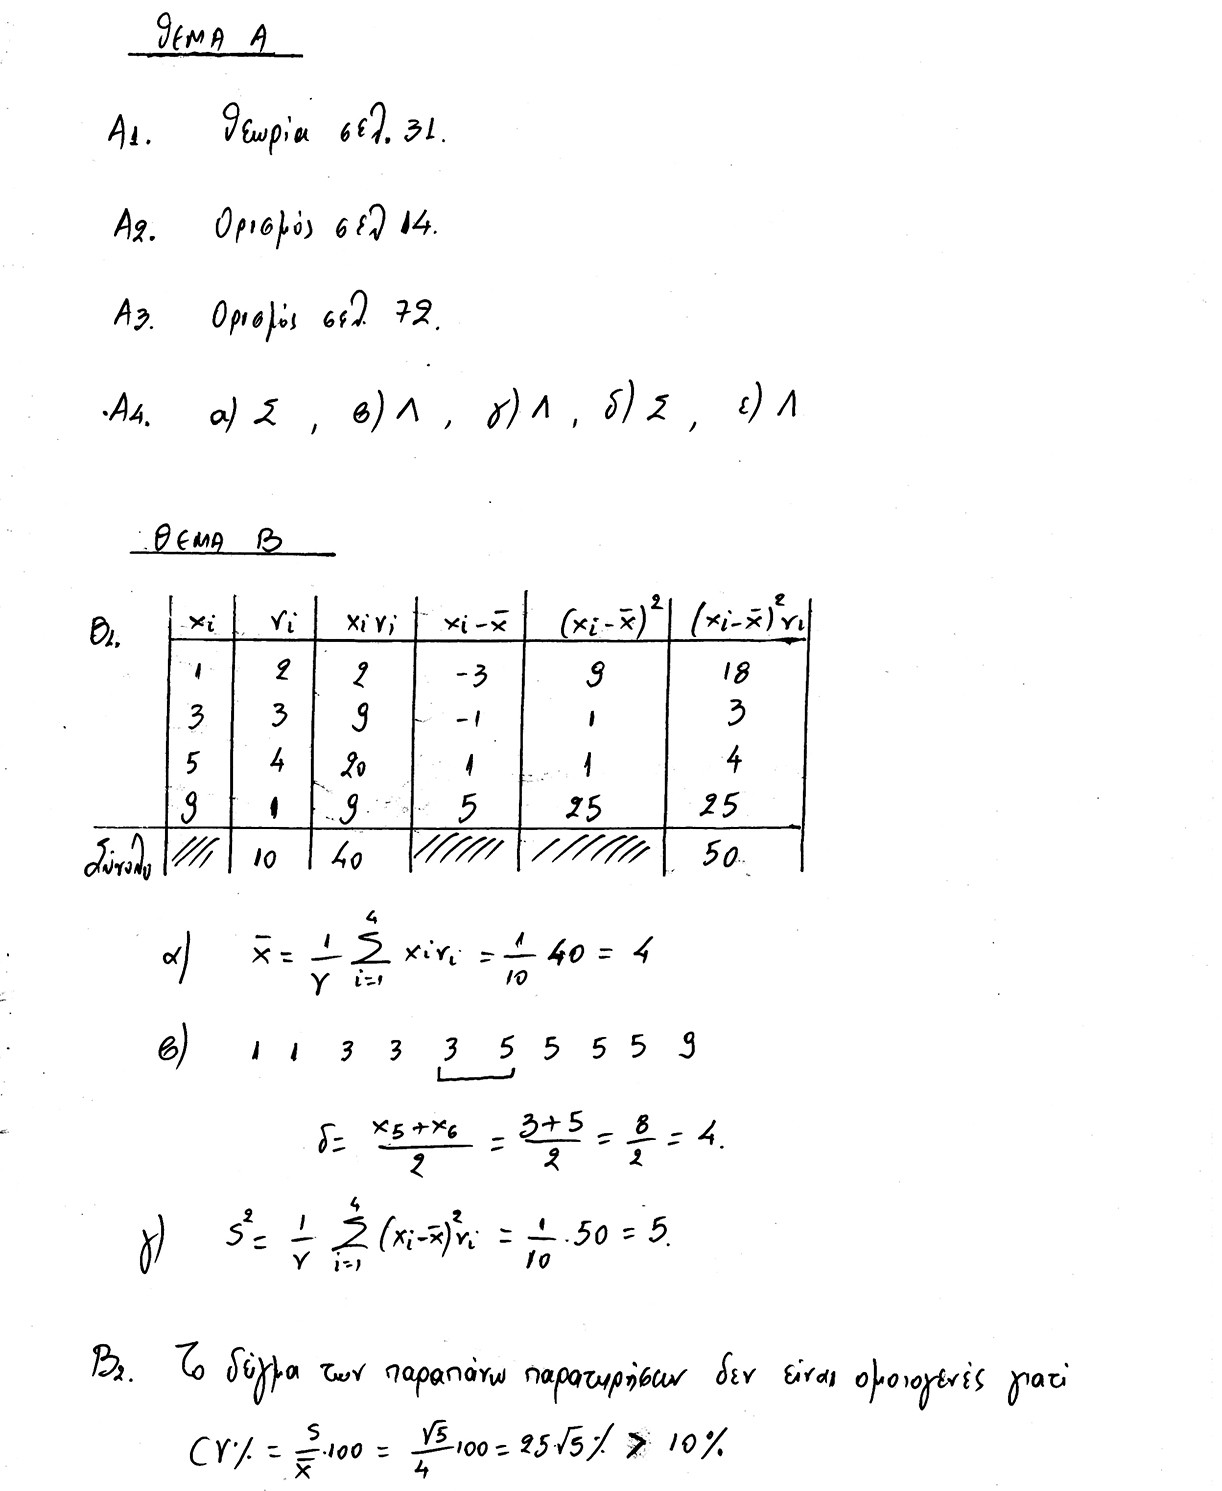 ΘΕΜΑ Α
Α1. Θεωρία σελ. 31.
Α2. Ορισμός σελ 14.
Α3. Ορισμός σελ 72.
Α4. α) Σ , β) Λ , γ) Λ , δ) Σ , ε) Λ
ΘΕΜΑ Β
Β1. xi νi xi νi xi - x̄ (xi - x̄)² (xi - x̄)² νi
1 2 2 -3 9 18
3 3 9 -1 1 3
5 4 20 1 1 4
9 1 9 5 25 25
Σύνολο //// 10 40 ////// /////// 50
α) x̄ = 1/ν Σ_{i=1}^{4} xi νi = 1/10 40 = 4
β) 1 1 3 3 3 5 5 5 5 9
δ = (x5 + x6)/2 = (3+5)/2 = 8/2 = 4.
γ) S² = 1/ν Σ_{i=1}^{4} (xi - x̄)² νi = 1/10 . 50 = 5.
Β2. Το δείγμα των παραπάνω παρατηρήσεων δεν είναι ομοιογενές γιατί
CV% = s/x̄ . 100 = √5/4 100 = 25√5% > 10%